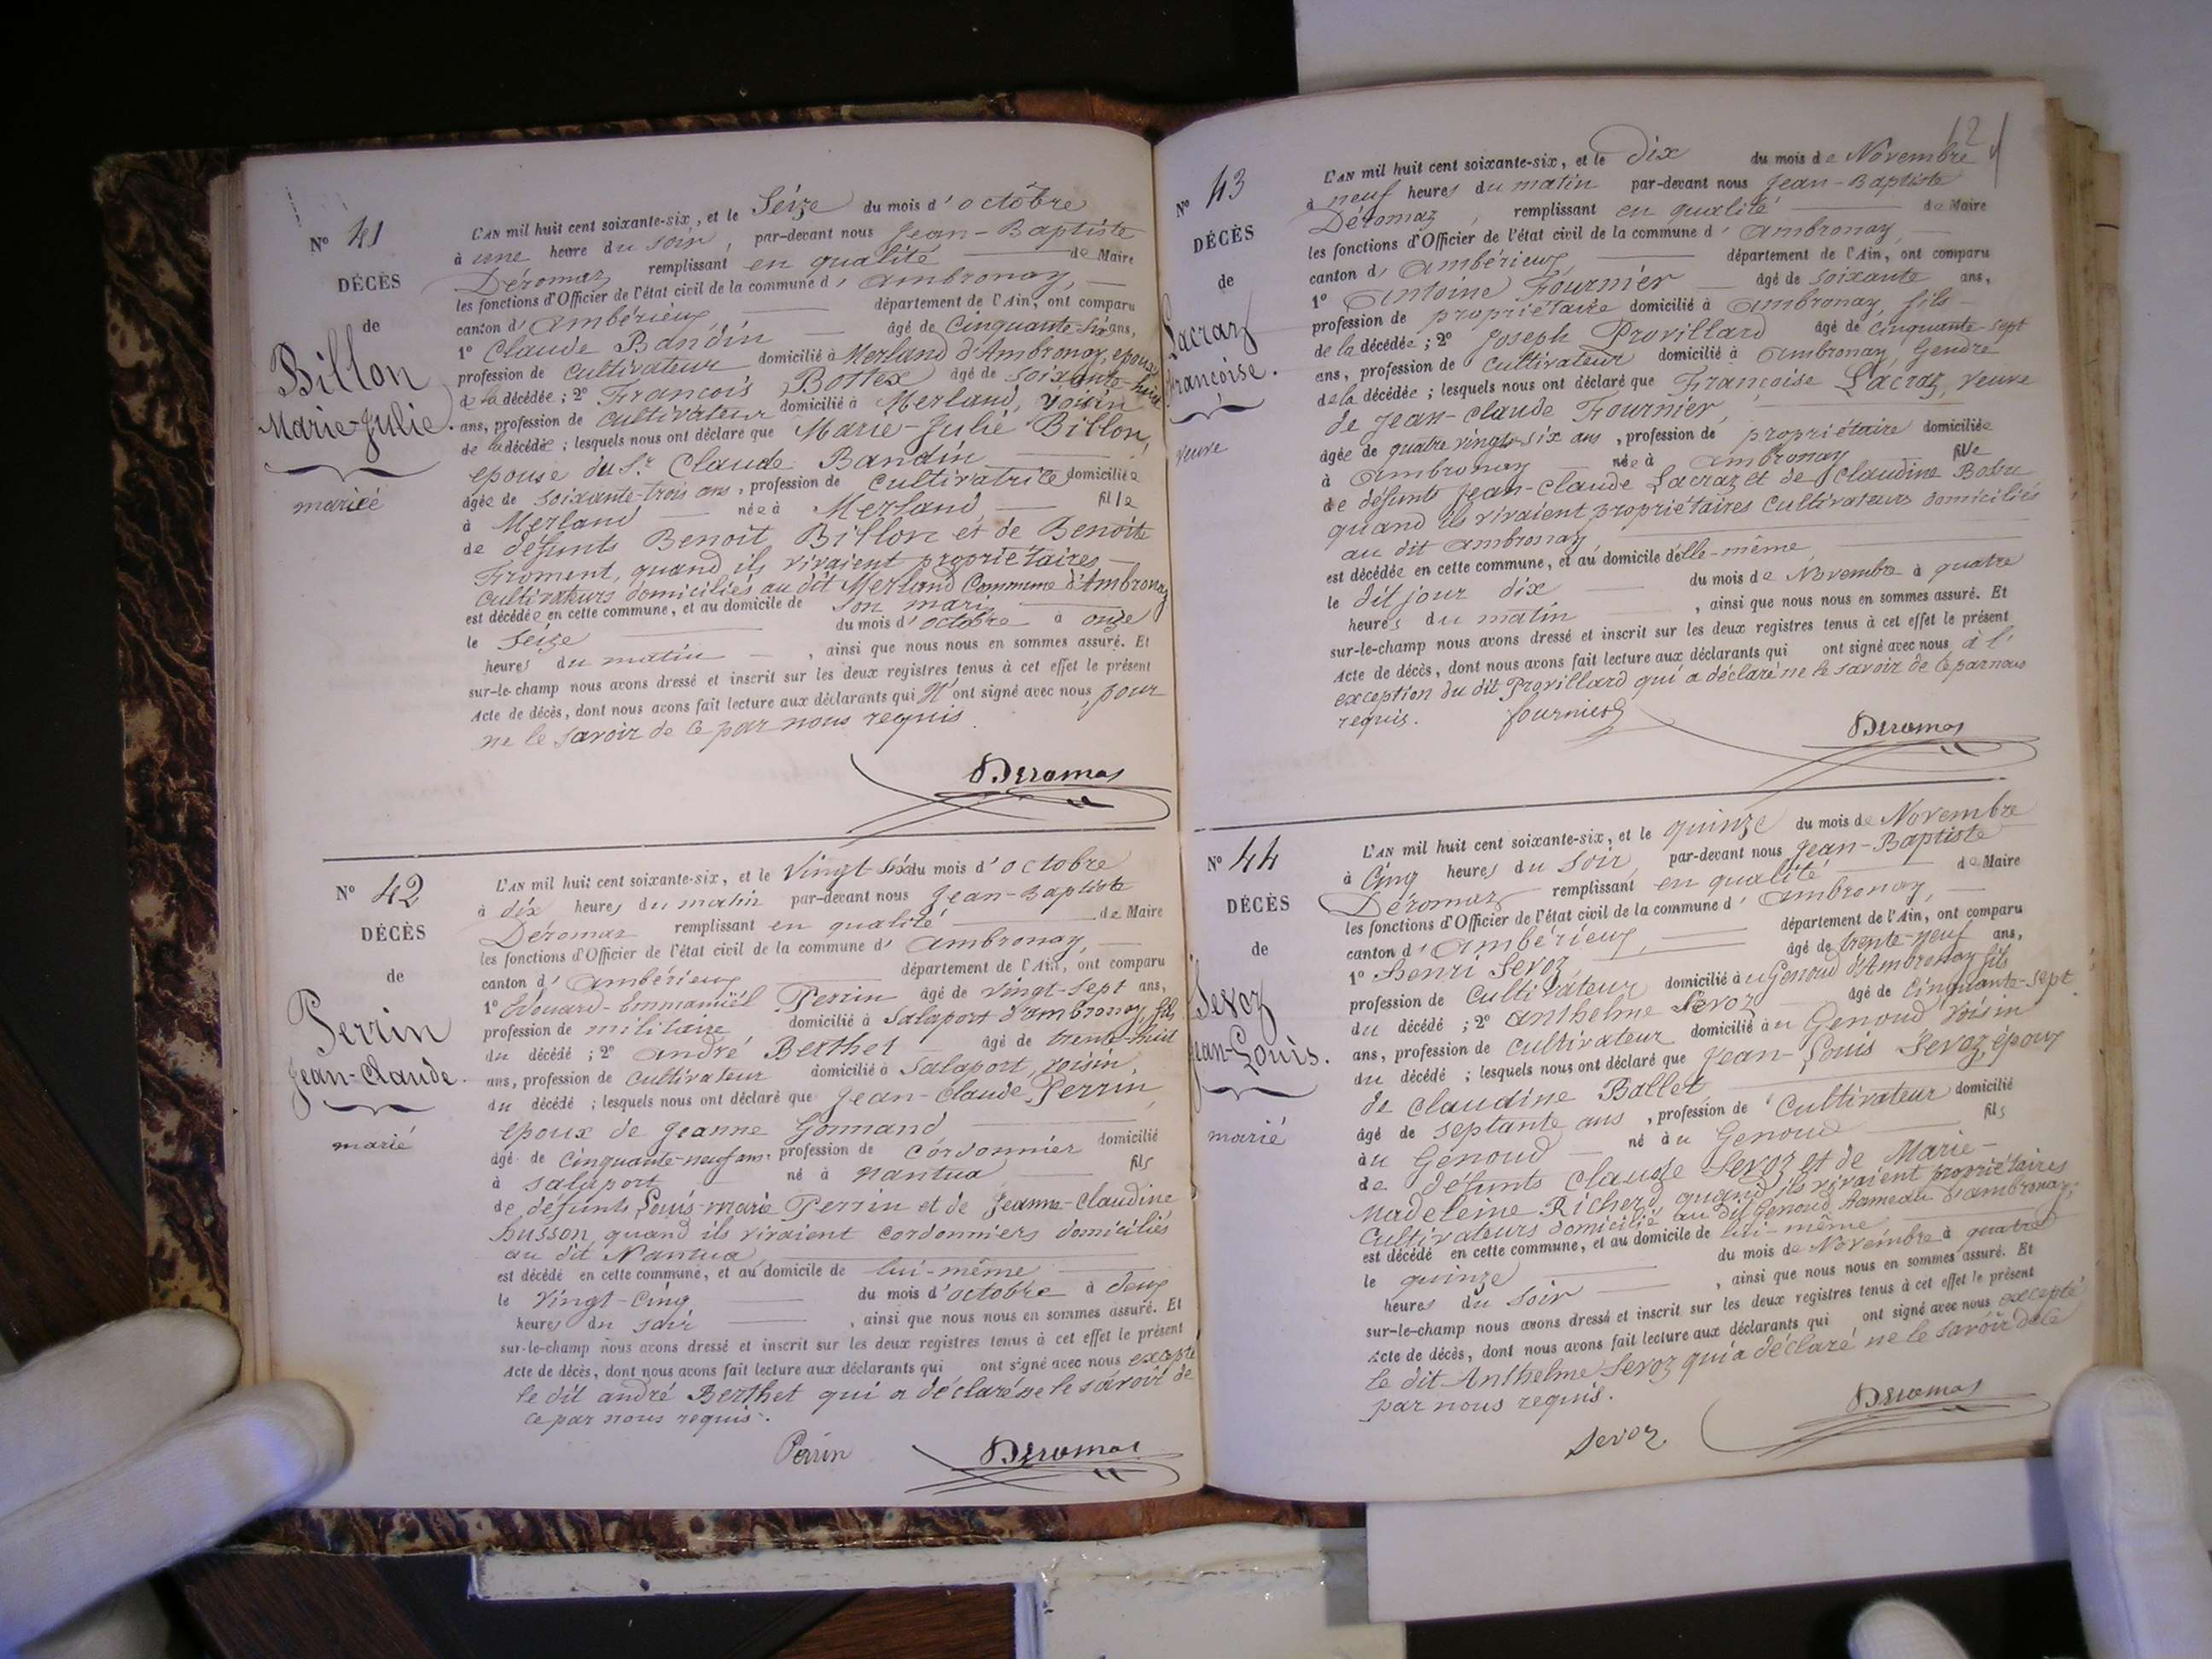 N° 41
DÉCÈS
de
Billon
Marie-Julie.
mariée
L'AN mil huit cent soixante-six, et le Seize du mois d'octôbre
à une heure du soir, par-devant nous Jean-Baptiste
Déromas remplissant en qualité de Maire
les fonctions d'Officier de l'état civil de la commune d'ambronay,
canton d'Ambérieux département de l'Ain, ont comparu
1° Claude Bandin âgé de Cinquante-six ans,
profession de cultivateur domicilié à Merland d'Ambronay, epoux
de la décédée ; 2° François Bottex âgé de soixante-huit
ans, profession de cultivateur domicilié à Merland, voisin
de la décédée ; lesquels nous ont déclaré que Marie-Julie Billon,
epouse du Sr Claude Bandin
âgée de soixante-trois ans, profession de cultivatrice domiciliée
à Merland née à Merland, fille
de défunts Benoit Billon et de Benoite
Froment, quand ils vivaient propriétaires
cultivateurs domiciliés au dit Merland Commune d'Ambronay
est décédée en cette commune, et au domicile de son mari
le Seize du mois d'octobre à onze
heures du matin, ainsi que nous nous en sommes assuré. Et
sur-le-champ nous avons dressé et inscrit sur les deux registres tenus à cet effet le présent
Acte de décès, dont nous avons fait lecture aux déclarants qui n'ont signé avec nous, pour
ne le savoir de ce par nous requis.
Deromas
N° 42
DÉCÈS
de
Perrin
Jean-Claude.
marié
L'AN mil huit cent soixante-six, et le Vingt-six du mois d'octobre
à dix heures du matin par-devant nous Jean-Baptiste
Déromas remplissant en qualité de Maire
les fonctions d'Officier de l'état civil de la commune d'ambronay,
canton d'ambérieux département de l'Ain, ont comparu
1° Edouard-Emmanuël Perrin âgé de vingt-sept ans,
profession de militaire domicilié à Salaport d'ambronay, fils
du décédé ; 2° andré Berthet âgé de trente-huit
ans, profession de cultivateur domicilié à Salaport, voisin,
du décédé ; lesquels nous ont déclaré que Jean-Claude Perrin,
epoux de Jeanne Gormand
âgé de Cinquante-neuf ans, profession de cordonnier domicilié
à Salaport né à Nantua fils
de défunts Louis-marie Perrin et de Jeanne-Claudine
husson, quand ils vivaient cordonniers domiciliés
au dit Nantua
est décédé en cette commune, et au domicile de lui-même
le vingt-cinq du mois d'octobre à deux
heures du soir, ainsi que nous nous en sommes assuré. Et
sur-le-champ nous avons dressé et inscrit sur les deux registres tenus à cet effet le présent
Acte de décès, dont nous avons fait lecture aux déclarants qui ont signé avec nous excepté
le dit andré Berthet qui a déclaré ne le savoir de
ce par nous requis.
Perrin Deromas
42
N° 43
DÉCÈS
de
Lacraz
Françoise.
veuve
L'AN mil huit cent soixante-six, et le Dix du mois de Novembre
à neuf heures du matin par-devant nous Jean-Baptiste
Déromaz, remplissant en qualité de Maire
les fonctions d'Officier de l'état civil de la commune d'ambronay,
canton d'ambérieux, département de l'Ain, ont comparu
1° Antoine Fournier âgé de soixante ans,
profession de propriétaire domicilié à ambronay, fils
de la décédée ; 2° Joseph Provillard âgé de cinquante-sept
ans, profession de cultivateur domicilié à ambronay, gendre
de la décédée ; lesquels nous ont déclaré que Françoise Lacraz, veuve
de Jean-Claude Fournier,
âgée de quatre vingt-six ans, profession de propriétaire domiciliée
à ambronay née à ambronay fille
de défunts Jean-Claude Lacraz et de Claudine
quand ils vivaient propriétaires cultivateurs domiciliés
au dit ambronay
est décédée en cette commune, et au domicile d'elle-même
le dit jour dix du mois de Novembre à quatre
heures du matin, ainsi que nous nous en sommes assuré. Et
sur-le-champ nous avons dressé et inscrit sur les deux registres tenus à cet effet le présent
Acte de décès, dont nous avons fait lecture aux déclarants qui ont signé avec nous à l'
exception du dit Provillard qui a déclaré ne le savoir de ce par nous
requis. fournier Deromas
N° 44
DÉCÈS
de
Sevoz
Jean-Louis.
marié
L'AN mil huit cent soixante-six, et le quinze du mois de Novembre
à Cinq heures du soir, par-devant nous Jean-Baptiste
Déromaz remplissant en qualité de Maire
les fonctions d'Officier de l'état civil de la commune d'ambronay,
canton d'ambérieux, département de l'Ain, ont comparu
1° henri Sevoz âgé de trente-neuf ans,
profession de cultivateur domicilié au Genoud d'Ambronay fils
du décédé ; 2° anthelme Sevoz âgé de Cinquante-sept
ans, profession de cultivateur domicilié au Genoud voisin
du décédé ; lesquels nous ont déclaré que Jean-Louis Sevoz, époux
de Claudine Ballet
âgé de septante ans, profession de Cultivateur domicilié
au Genoud né au Genoud fils
de défunts Claude Sevoz et de Marie-
Madeleine Richerd, quand ils vivaient propriétaires
cultivateurs domicilié au dit Genoud hameau d'ambronay,
est décédé en cette commune, et au domicile de lui-même
le quinze du mois de Novembre à quatre
heures du soir, ainsi que nous nous en sommes assuré. Et
sur-le-champ nous avons dressé et inscrit sur les deux registres tenus à cet effet le présent
Acte de décès, dont nous avons fait lecture aux déclarants qui ont signé avec nous excepté
le dit Anthelme Sevoz qui a déclaré ne le savoir de ce
par nous requis.
Sevoz Deromas